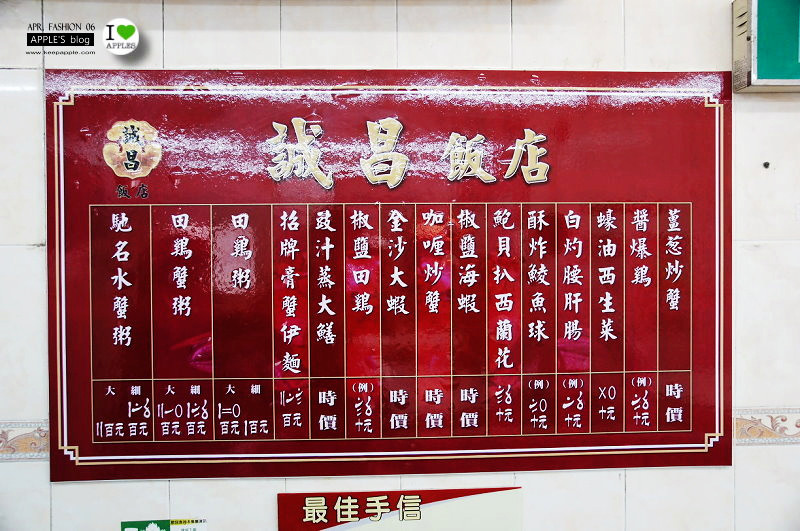 APR. FASHION 06
APPLE'S blog
www.keepapple.com
I
APPLES
誠昌飯店
誠
昌
飯店
薑葱炒蟹
時價
醬爆鷄
(例)
十元
蠔油西生菜
十元
白灼腰肝腸
(例)
十元
酥炸鯪魚球
(例)
十元
鮑貝扒西蘭花
十元
椒鹽海蝦
時價
咖喱炒蟹
時價
金沙大蝦
時價
椒鹽田鷄
(例)
十元
豉汁蒸大鱔
時價
招牌膏蟹伊麵
百元
田鷄粥
大 細
百元 百元
田鷄蟹粥
大 細
百元 百元
馳名水蟹粥
大 細
百元 百元
最佳手信